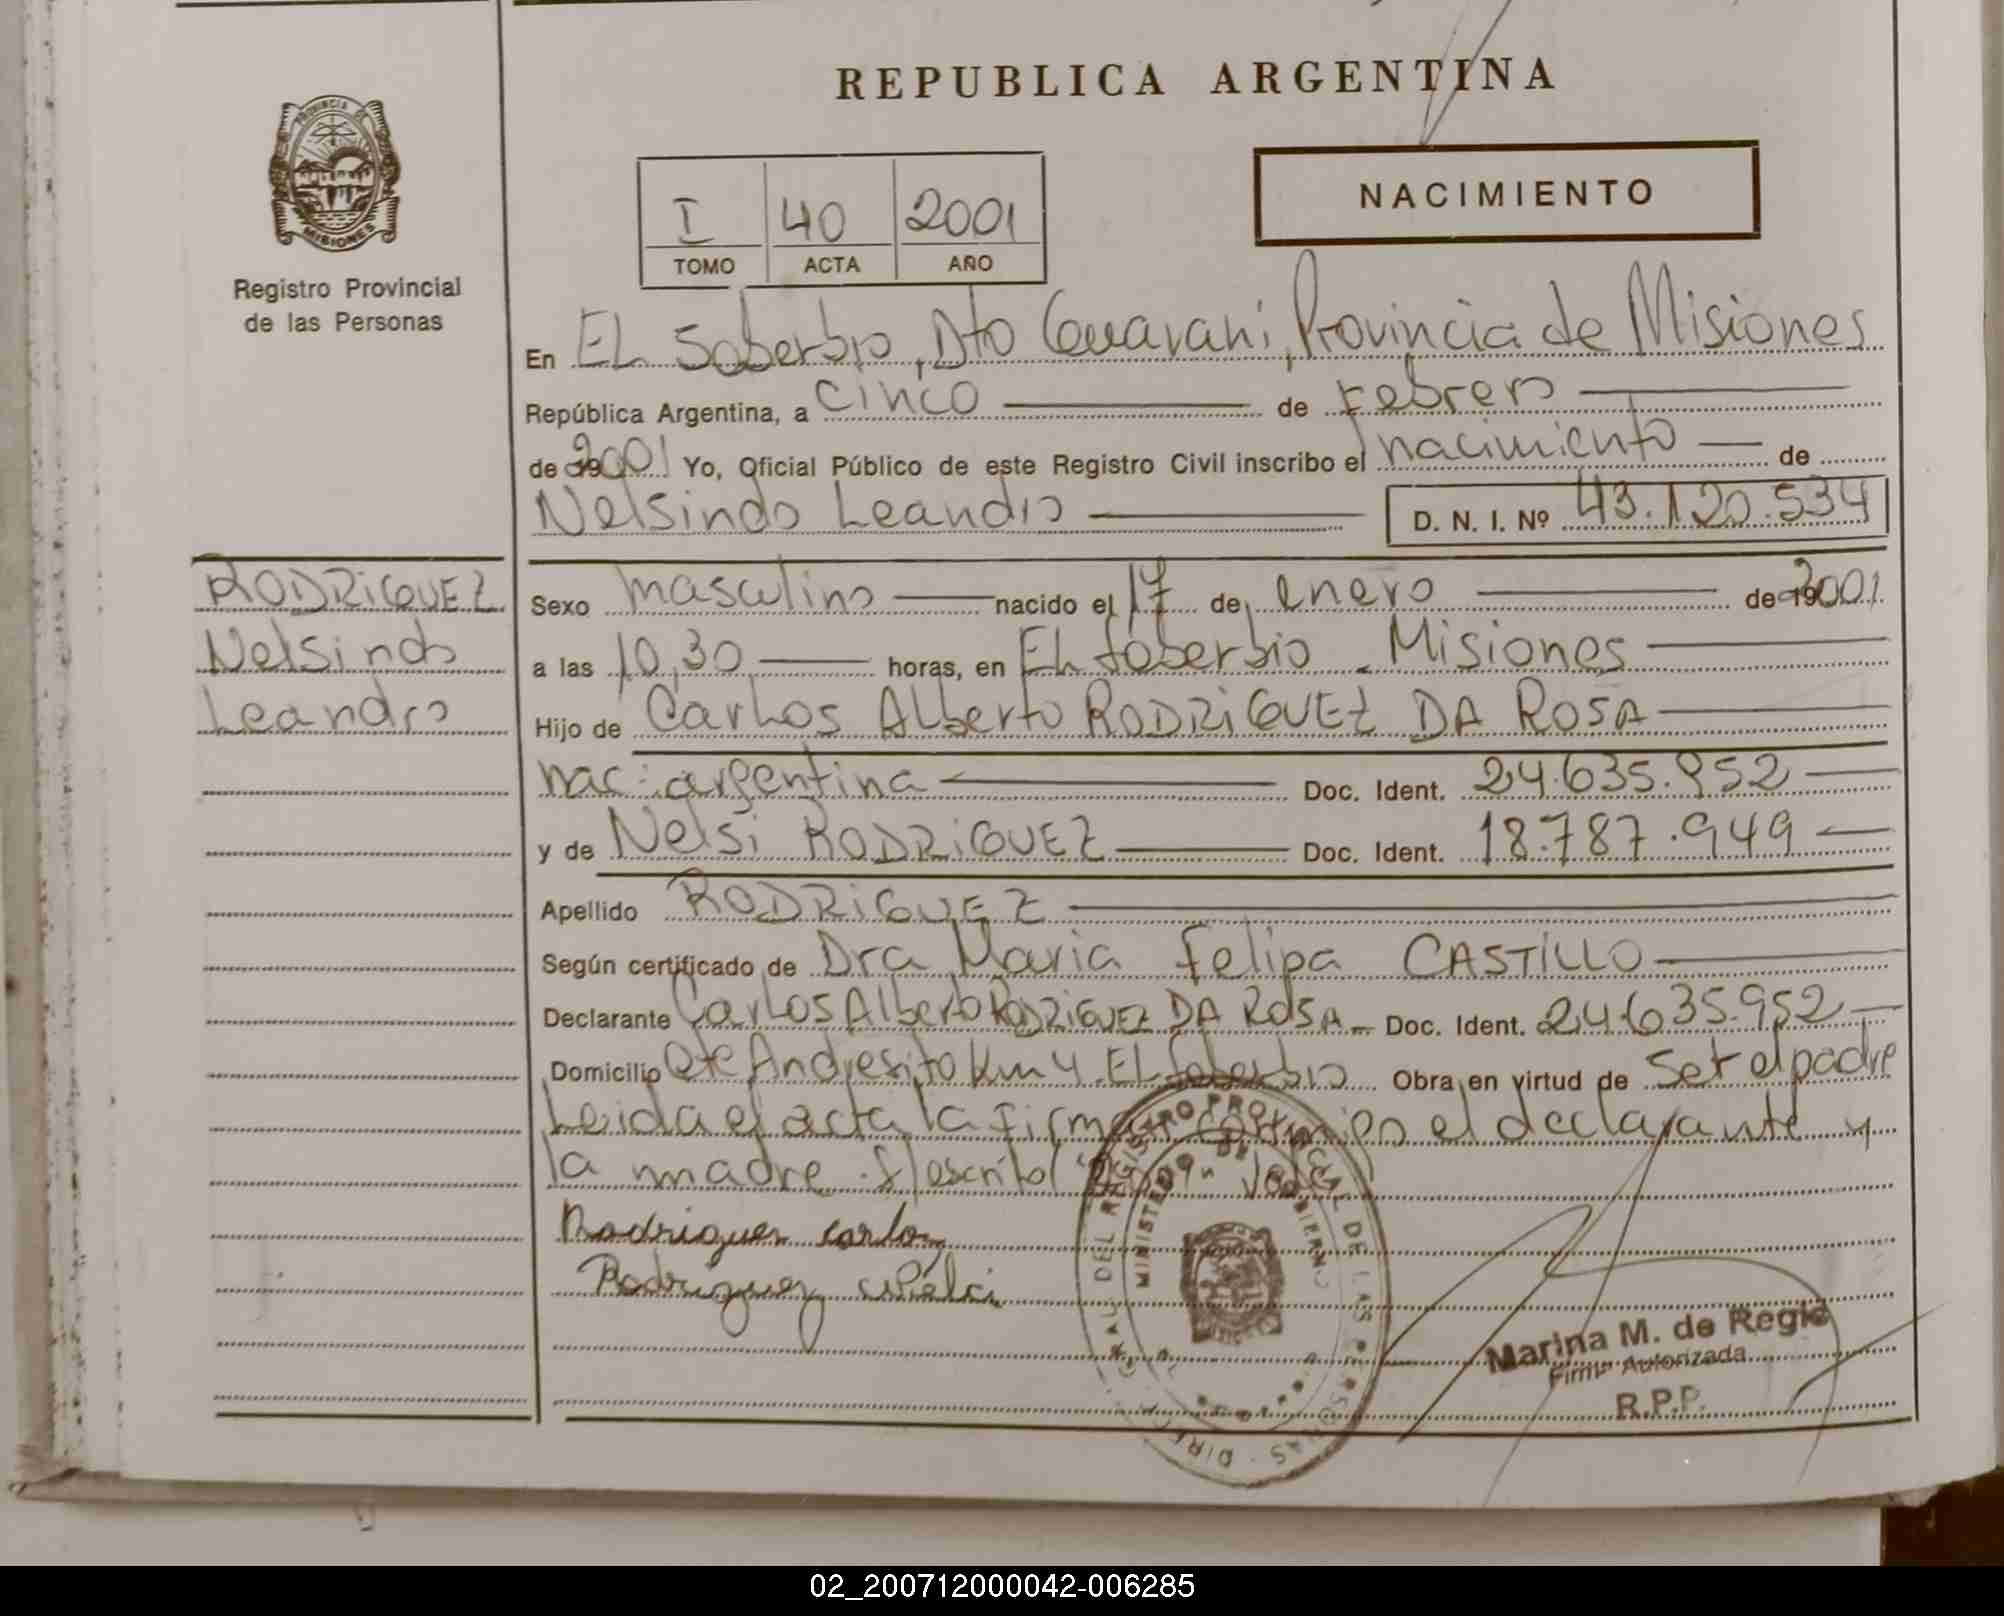 REPUBLICA ARGENTINA
PROVINCIA DE
MISIONES
Registro Provincial
de las Personas
I 40 2001
TOMO ACTA AÑO
NACIMIENTO
En EL Soberbio, Dto Guarani, Provincia de Misiones
República Argentina, a cinco de Febrero
de 2001 Yo, Oficial Público de este Registro Civil inscribo el nacimiento de
Nelsindo Leandro D. N. I. Nº 43.120.534
RODRIGUEZ
Nelsindo
Leandro
Sexo masculino nacido el 17 de enero de 2001
a las 10,30 horas, en EL Soberbio - Misiones
Hijo de Carlos Alberto RODRIGUEZ DA ROSA
nac: argentina Doc. Ident. 24.635.952
y de Nelsi RODRIGUEZ Doc. Ident. 18.787.949
Apellido RODRIGUEZ
Según certificado de Dra Maria Felipa CASTILLO
Declarante Carlos Alberto RODRIGUEZ DA ROSA Doc. Ident. 24.635.952
Domicilio Andresito Km 4 EL Soberbio Obra en virtud de ser el padre
Leida el acta la firman el declarante y
la madre. S/escrito Vale
Rodriguez Carlos
Rodriguez Nelsi
DIREC. GRAL. DEL REGISTRO PROVINCIAL DE LAS PERSONAS
MINISTERIO DE GOBIERNO
Marina M. de Regie
Firma Autorizada
R.P.P.
02_200712000042-006285